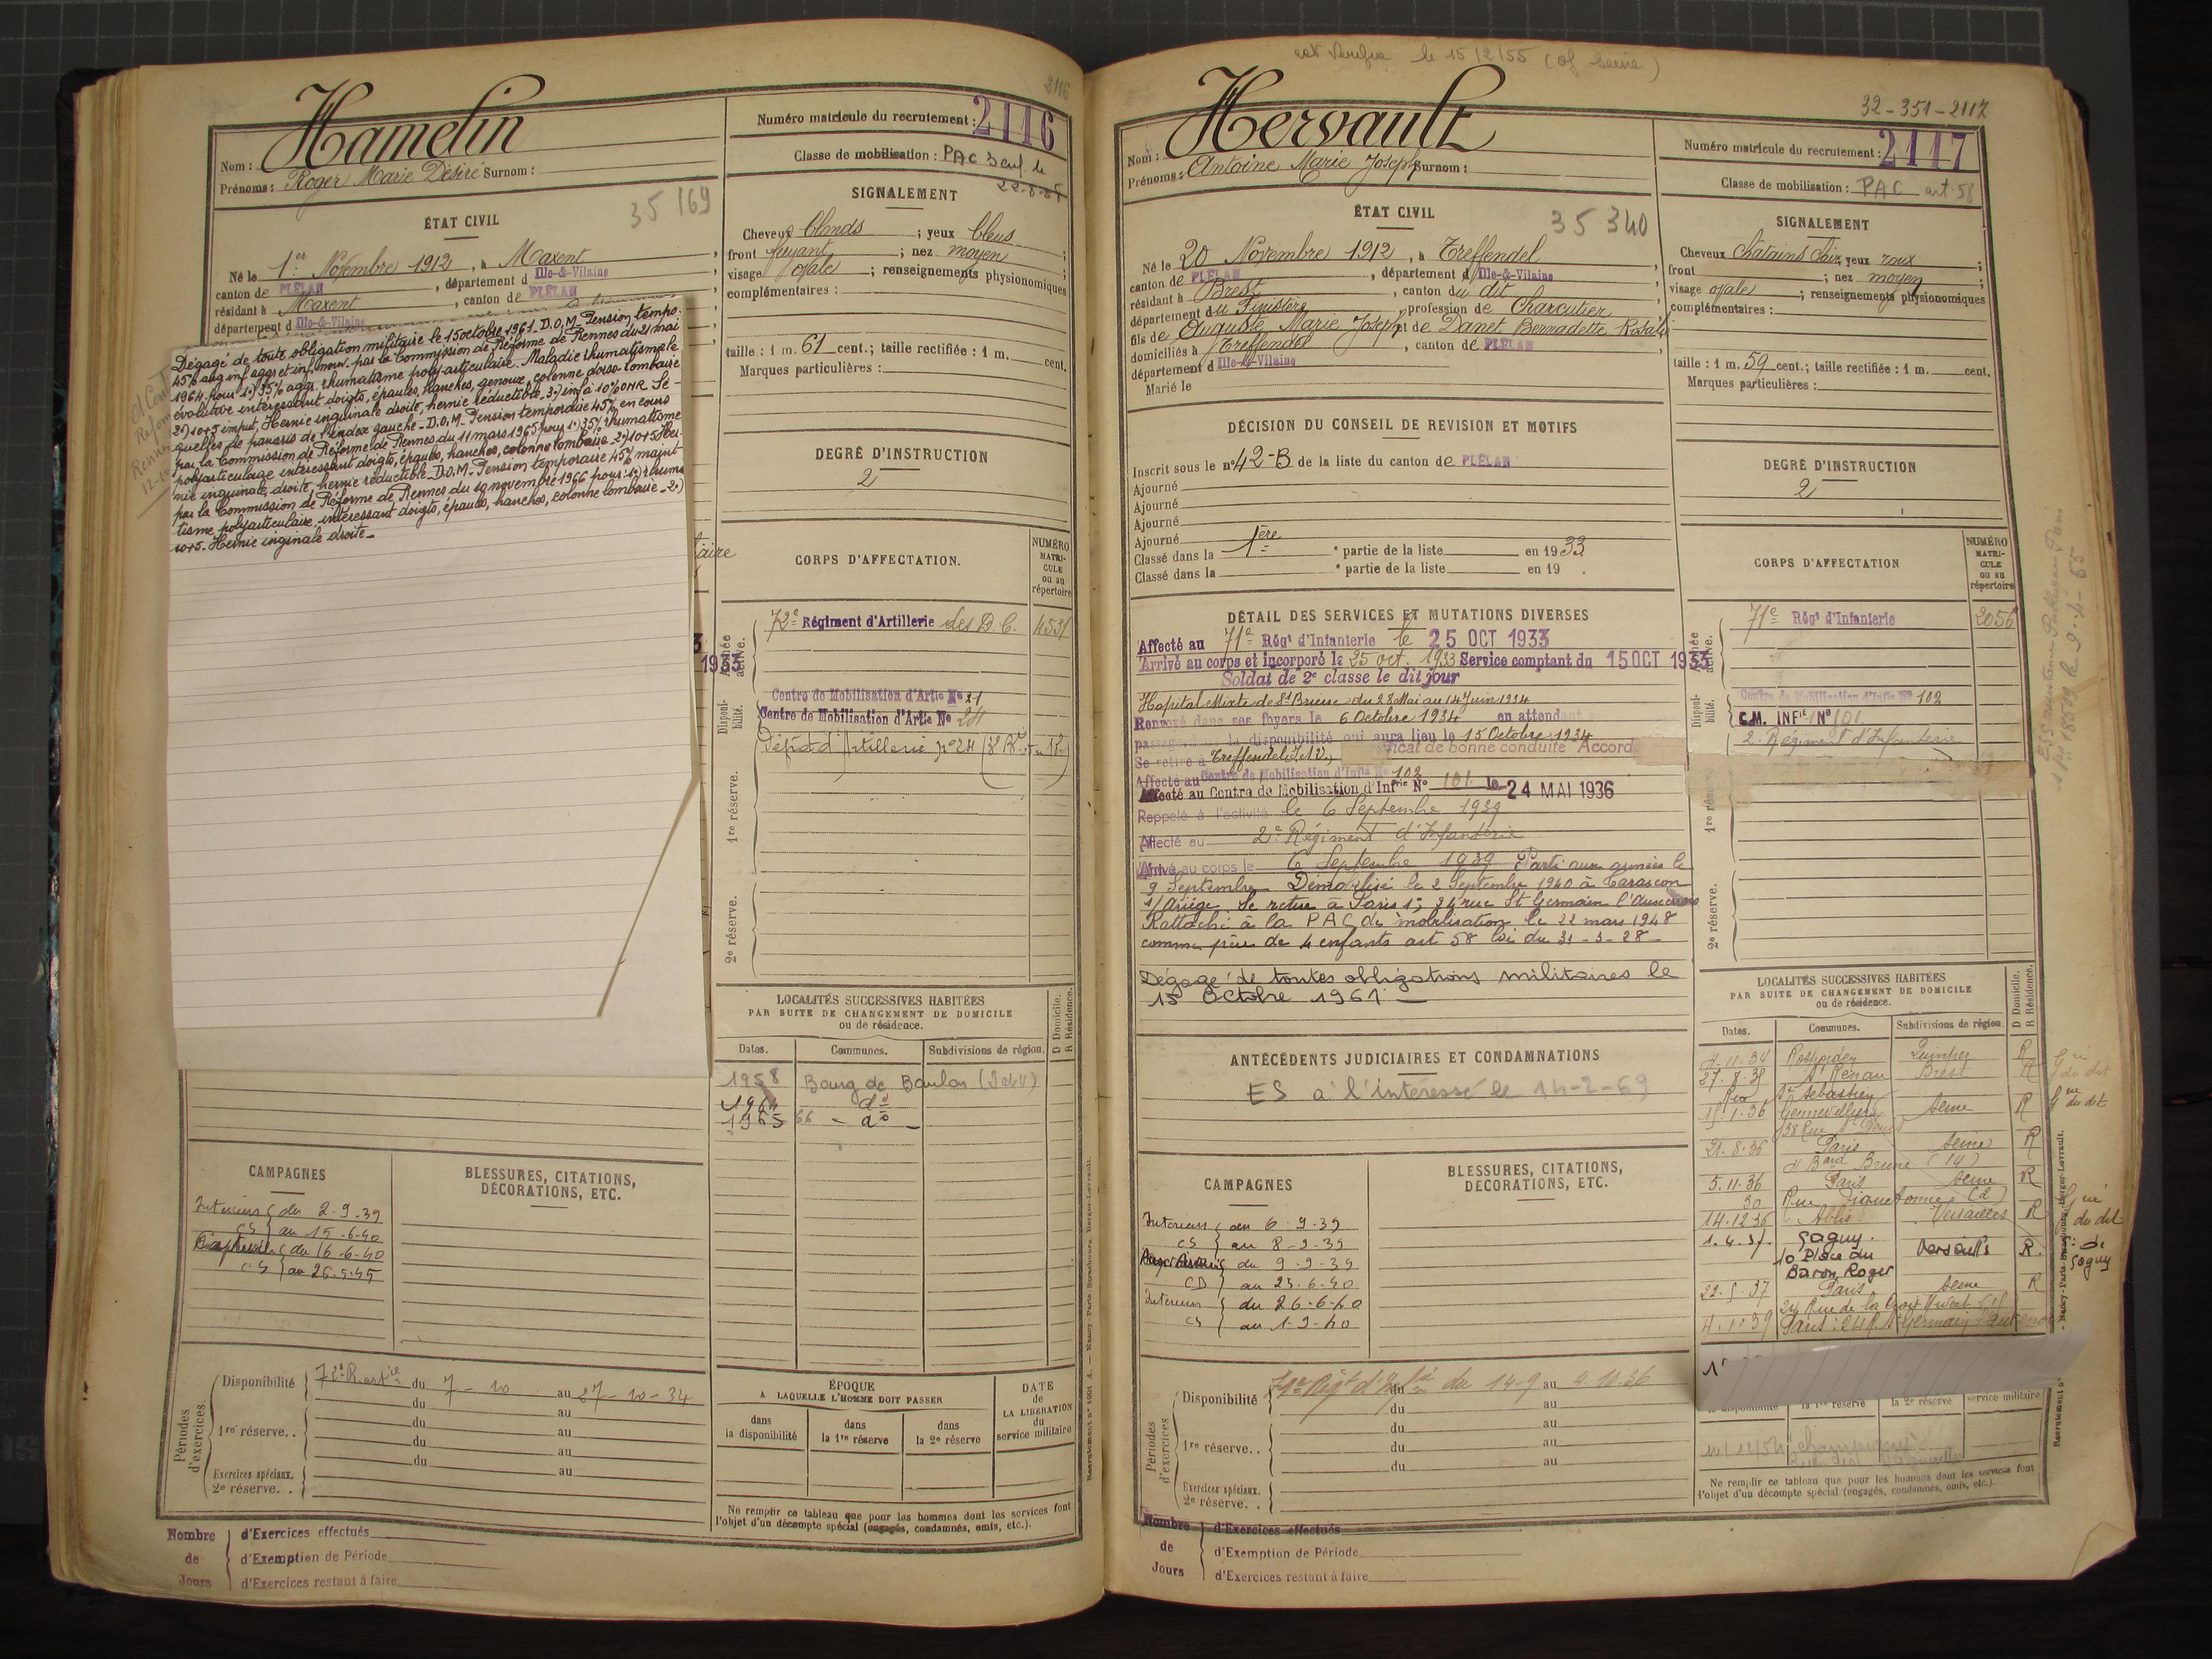 2116
Hamelin
Nom :
Prénoms : Roger Marie Désiré Surnom :
Numéro matricule du recrutement : 2116
Classe de mobilisation : PAC
22-8-
ÉTAT CIVIL
35 169
Né le 1er Novembre 1912, à Maxent
canton de PLÉLAN, département d Ille-&-Vilaine
résidant à Maxent, canton de PLÉLAN
département d Ille-&-Vilaine
Dégagé de toute obligation militaire le 15 octobre 1961. D.O.M. Pension tempo-
45% aug inf aggr et inf nouv. par la Commission de Réforme de Rennes du 21 mai
1964 pour 1°) 35% aggr. rhumatisme poly-articulaire. Maladie rhumatismale
évolutive intéressant doigts, épaules, hanches, genoux, colonne dorso-lombaire
2°) 10+5 imput, Hernie inguinale droite, hernie réductible, 3°) inf à 10% ONR Sé-
quelles de panaris de l'index gauche - D.O.M - Pension temporaire 45% en cours
par la Commission de Réforme de Rennes du 11 mars 1965 pour 1°) 35% rhumatisme
polyarticulaire intéressant doigts, épaules, hanches, colonne lombaire - 2°) 10+5 Her-
nie inguinale droite, hernie réductible - D.O.M - Pension temporaire 45% maint
par la Commission de Réforme de Rennes du 10 novembre 1966 pour : 1°) rhuma
tisme polyarticulaire intéressant doigts, épaules, hanches, colonne lombaire - 2°)
10+5. Hernie inginale droite -
taire
1933
SIGNALEMENT
Cheveux blonds ; yeux bleus ;
front fuyant ; nez moyen
visage ovale ; renseignements physionomiques
complémentaires :
taille : 1 m. 61 cent. ; taille rectifiée : 1 m. cent.
Marques particulières :
DEGRÉ D'INSTRUCTION
2
CORPS D'AFFECTATION.
NUMÉRO
MATRI-
CULE
ou au
répertoire
Armée active.
72e Régiment d'Artillerie des D.C. 4531
Disponi-
bilité.
Centre de Mobilisation d'Artie No 21
Centre de Mobilisation d'Artie No 24
Dépôt d'Artillerie no 24
1re réserve.
2e réserve.
LOCALITÉS SUCCESSIVES HABITÉES
PAR SUITE DE CHANGEMENT DE DOMICILE
ou de résidence.
D Domicile.
R Résidence.
Dates. Communes. Subdivisions de région.
1958 Bourg de Baulon (I et V)
1964 do
1965 66 - do -
CAMPAGNES
Intérieur du 2-9-39
CS au 15-6-40
Captivité du 16-6-40
CS au 26-5-45
BLESSURES, CITATIONS,
DÉCORATIONS, ETC.
Périodes d'exercices.
Disponibilité 72e R. du 7-10 au 27-10-34
du au
1re réserve.. du au
du au
du au
Exercices spéciaux.
2e réserve. . au
ÉPOQUE
A LAQUELLE L'HOMME DOIT PASSER
dans
la disponibilité
dans
la 1re réserve
dans
la 2e réserve
DATE
de
LA LIBÉRATION
du
service militaire
Ne remplir ce tableau que pour les hommes dont les services font
l'objet d'un décompte spécial (engagés, condamnés, omis, etc.).
Nombre
de
Jours
d'Exercices effectués
d'Exemption de Période
d'Exercices restant à faire
le 15/2/55 (of Seine)
32-351-2117
Hervault
Nom :
Prénoms : Antoine Marie Joseph Surnom :
Numéro matricule du recrutement : 2117
Classe de mobilisation : PAC art. 58
ÉTAT CIVIL
35 340
Né le 20 Novembre 1912, à Treffendel
canton de PLÉLAN, département d Ille-&-Vilaine
résidant à Brest, canton du dit
département du Finistère, profession de Charcutier
fils de Auguste Marie Joseph et de Danet Bernadette Rosalie
domiciliés à Treffendel, canton de PLÉLAN
département d Ille-&-Vilaine
Marié le
DÉCISION DU CONSEIL DE REVISION ET MOTIFS
Inscrit sous le no 42-B de la liste du canton de PLÉLAN
Ajourné
Ajourné
Ajourné
Ajourné
Classé dans la 1ère partie de la liste en 1933
Classé dans la e partie de la liste en 19 .
DÉTAIL DES SERVICES ET MUTATIONS DIVERSES
Affecté au 71e Régt d'Infanterie le 25 OCT 1933
Arrivé au corps et incorporé le 25 oct. 1933 Service comptant du 15 OCT 1933
Soldat de 2e classe le dit jour
Hopital Mixte de St Brieuc du 28 Mai au 14 Juin 1934
Renvoyé dans ses foyers le 6 Octobre 1934 en attendant
passage dans la disponibilité qui aura lieu le 15 Octobre 1934
Se retire à Treffendel I. et V. ficat de bonne conduite Accord
Affecté au Centre de Mobilisation d'Infie No 102
Affecté au Centre de Mobilisation d'Infrie No 101 le 24 MAI 1936
Rappelé à l'activité le 6 Septembre 1939
Affecté au 2e Régiment d'Infanterie
Arrivé au corps le 6 Septembre 1939 Parti aux armées le
9 Septembre Démobilisé le 2 Septembre 1940 à Tarascon
s/Ariège. Se retire à Paris 1er 24 rue St Germain l'Auxerrois
Rattaché à la PAC de mobilisation le 22 mars 1948
comme père de 4 enfants art 58 loi du 31-3-28
Dégagé de toutes obligations militaires le
15 Octobre 1961 -
ANTÉCÉDENTS JUDICIAIRES ET CONDAMNATIONS
ES à l'intéressé le 14-2-69
SIGNALEMENT
Cheveux châtains clair, yeux roux ;
front ; nez moyen
visage ovale ; renseignements physionomiques
complémentaires :
taille : 1 m. 59 cent. ; taille rectifiée : 1 m. cent.
Marques particulières :
DEGRÉ D'INSTRUCTION
2
CORPS D'AFFECTATION
NUMÉRO
MATRI-
CULE
ou au
répertoire
71e Régt d'Infanterie 2056
Disponi-
bilité.
Centre de Mobilisation d'Infie No 102
C.M. INFie No 101
2e Régiment d'Infanterie
1re rése
2e réserve.
LOCALITÉS SUCCESSIVES HABITÉES
PAR SUITE DE CHANGEMENT DE DOMICILE
ou de résidence.
D Domicile.
R Résidence.
Dates. Communes. Subdivisions de région.
4.11.34 Rosporden Quimper R
27.8.35 St Renan Brest R
Rue St Sébastien
15.1.36 Gennevilliers Seine R
21.8.36 Paris Seine R
Bard Brune (14)
5.11.36 Paris Seine R
30 Rue Tiquetonne (2)
14.12.36 Ablis Versailles R
1.4.37. Gagny. Versailles R.
10 Place du
Baron Roger
22.5.37 Paris Seine R
24 Rue de la Croix Nivert
4.1.39 Paris : 24 R. St Germain l'Auxerrois
CAMPAGNES
Intérieur du 6-9-39
CS au 8-9-39
Aux Armées du 9-9-39
CD au 25-6-40
Intérieur du 26-6-40
CS au 1-9-40
BLESSURES, CITATIONS,
DÉCORATIONS, ETC.
Périodes d'exercices
Disponibilité 71e Régt d'Infie du 14-9 au
du au
du au
1re réserve. . du au
du au
Exercices spéciaux.
2e réserve. .
la disponibilité la 1re réserve la 2e réserve service militaire
Ne remplir ce tableau que pour les hommes dont les services font
l'objet d'un décompte spécial (engagés, condamnés, omis, etc.).
Nombre
de
Jours
d'Exercices effectués
d'Exemption de Période
d'Exercices restant à faire